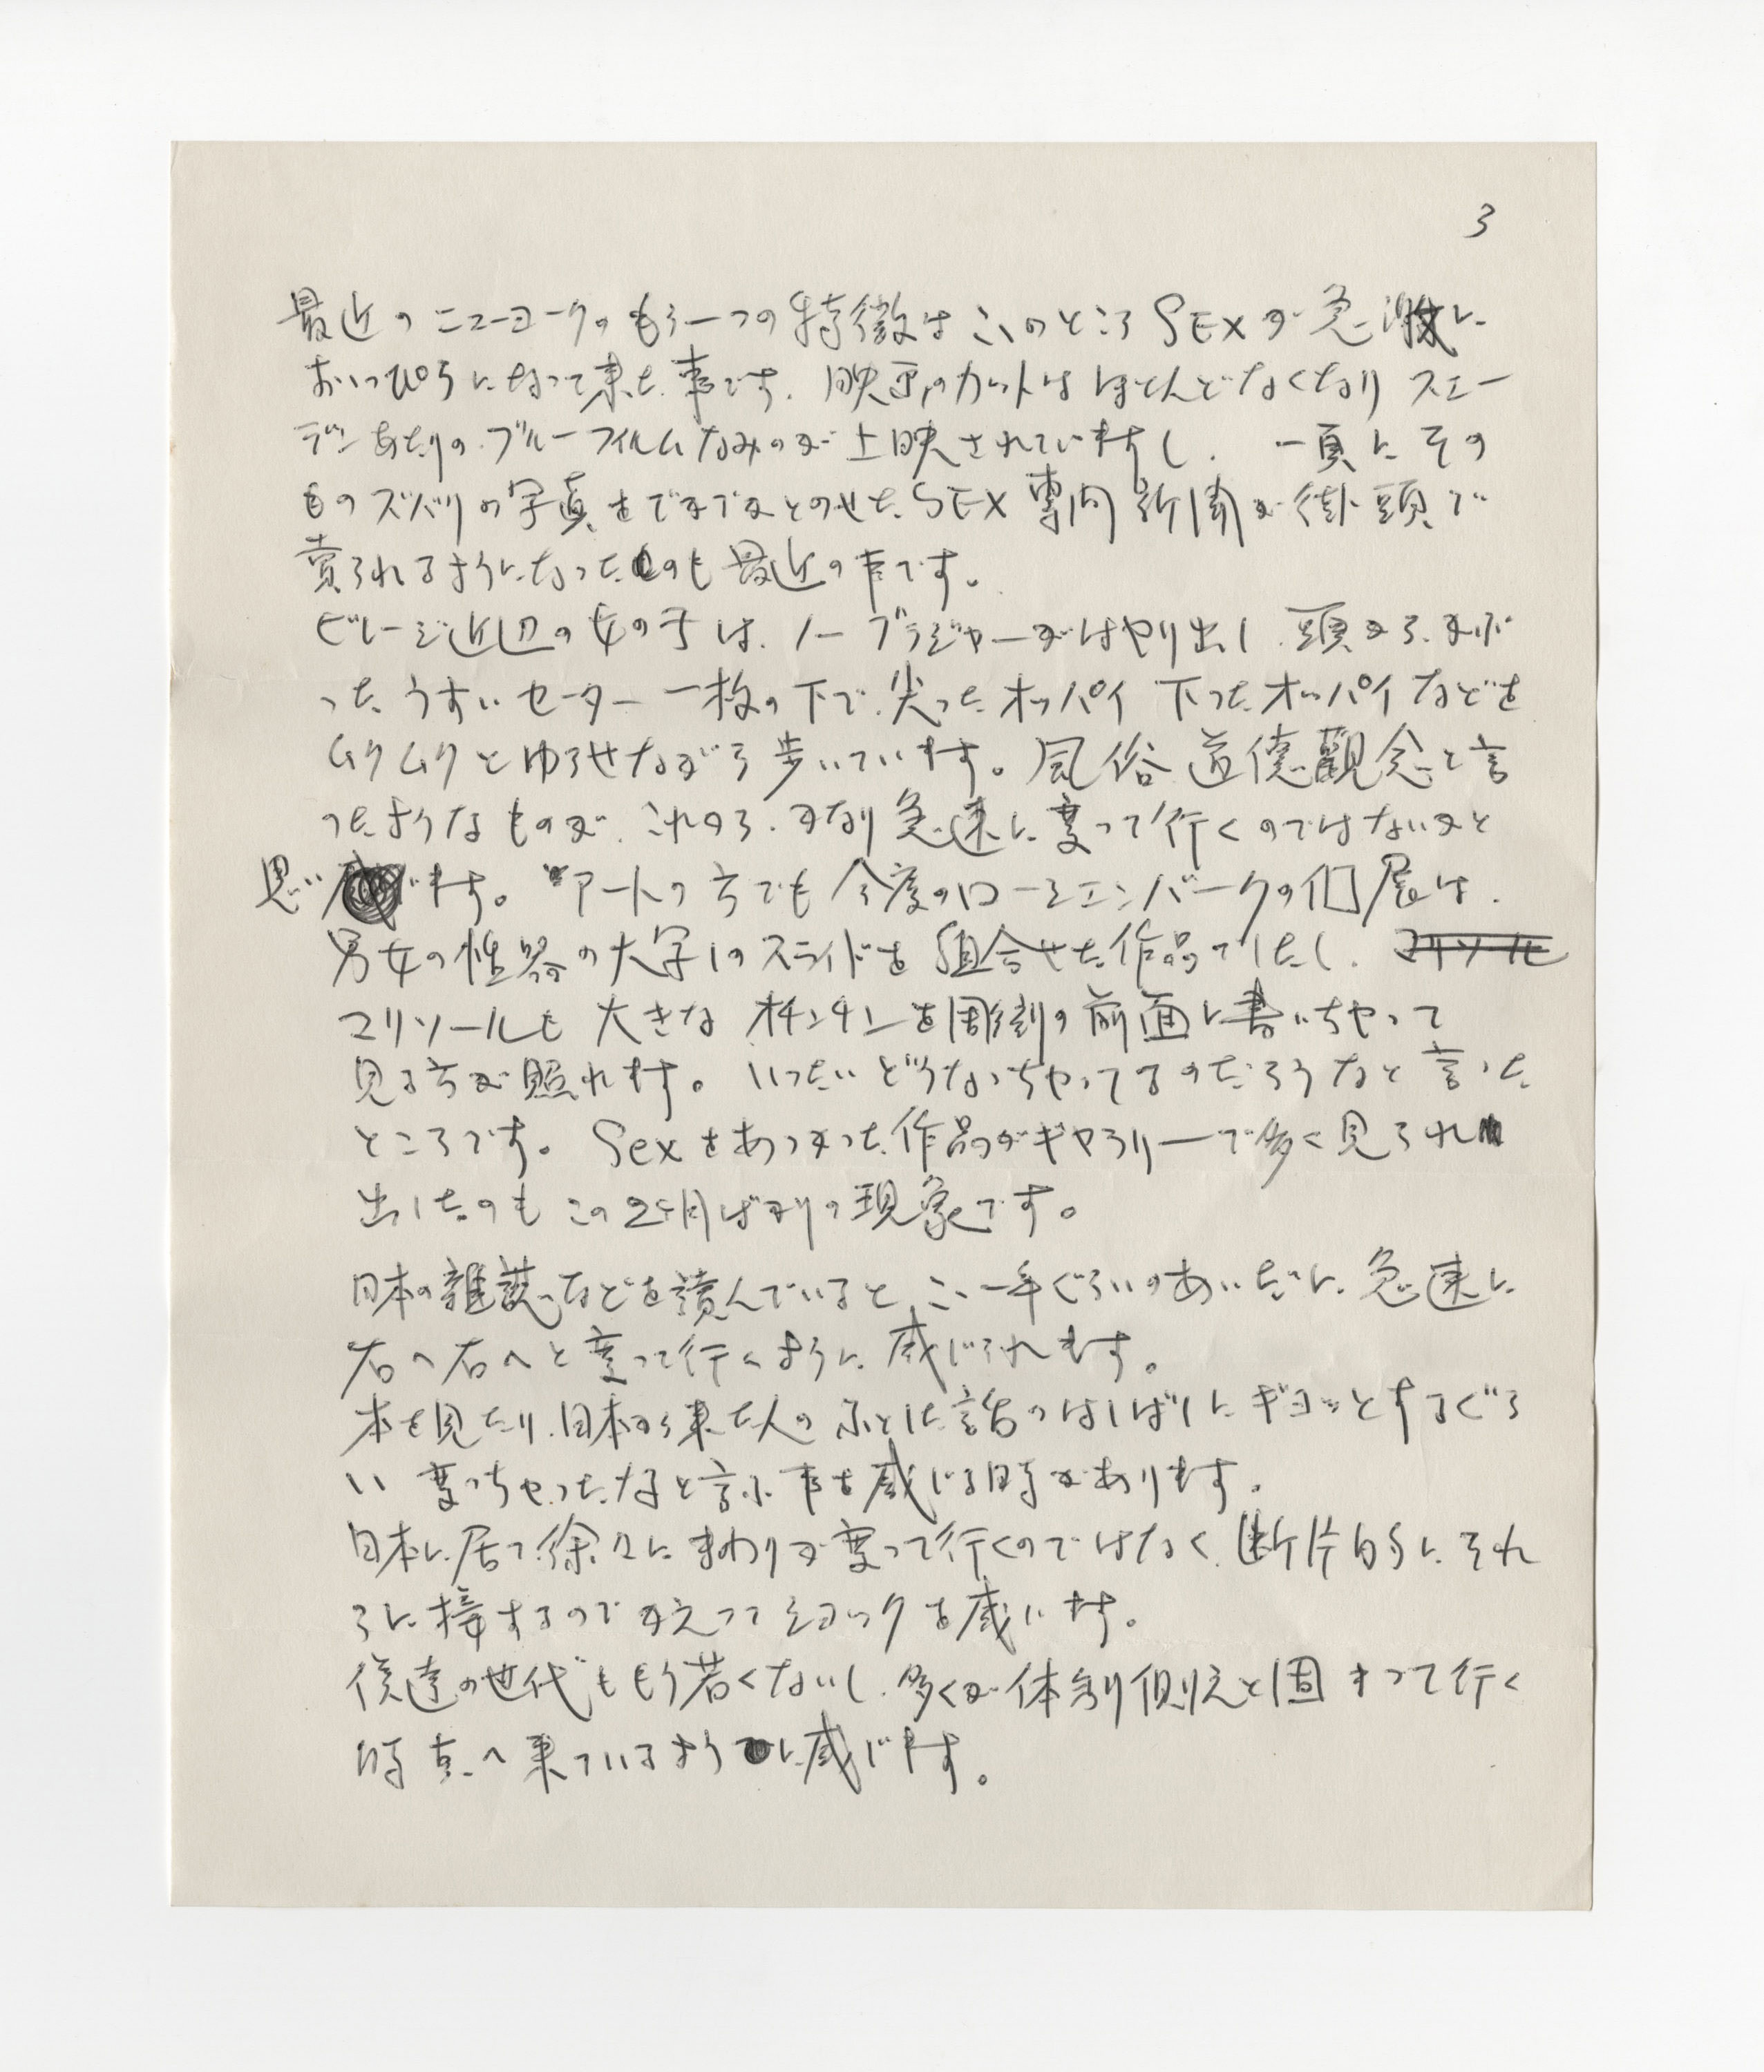 3
最近のニューヨークのもう一つの特徴はこゝのところSEXが急激に
おゝっぴらになって来た事です。映画のカットはほとんどなくなり スエー
デンあたりのブルーフィルムなみのが上映されていますし、一頁にその
ものズバリの写真をでかでかとのせたSEX専門新聞が街頭で
売られるようになったのも最近の事です。
ビレージ近辺の女の子は、ノーブラジャーがはやり出し、頭からかぶ
ったうすいセーター一枚の下で、尖ったオッパイ 下ったオッパイなどを
ムクムクとゆらせながら歩いています。風俗、道徳觀念と言
ったようなものが、これから、かなり急速に変って行くのではないかと
思います。アートの方でも今度のローシェンバークの個展は、
男女の性器の大写しのスライドを組合せた作品でしたし、マリソールも
マリソールも大きなオチンチンを彫刻の前面に書いちゃって
見る方が照れます。いったいどうなっちゃってるのだろうなと言った
ところです。Sexをあつかった作品がギャラリーで多く見られ
出したのもこの2ヶ月ばかりの現象です。
日本の雑誌などを読んでいると、こゝ一年ぐらいのあいだに、急速に
右へ右へと変って行くように感じられます。
本を見たり、日本から来た人のふとした話のはしばしにギョッとするぐら
い 変っちゃったなと言ふ事を感じる時があります。
日本に居て徐々にまわりが変って行くのではなく、断片的にそれ
らに接するのでかえってショックを感じます。
僕達の世代ももう若くないし、多くが体制側えと固まって行く
時点へ来ているように感じます。